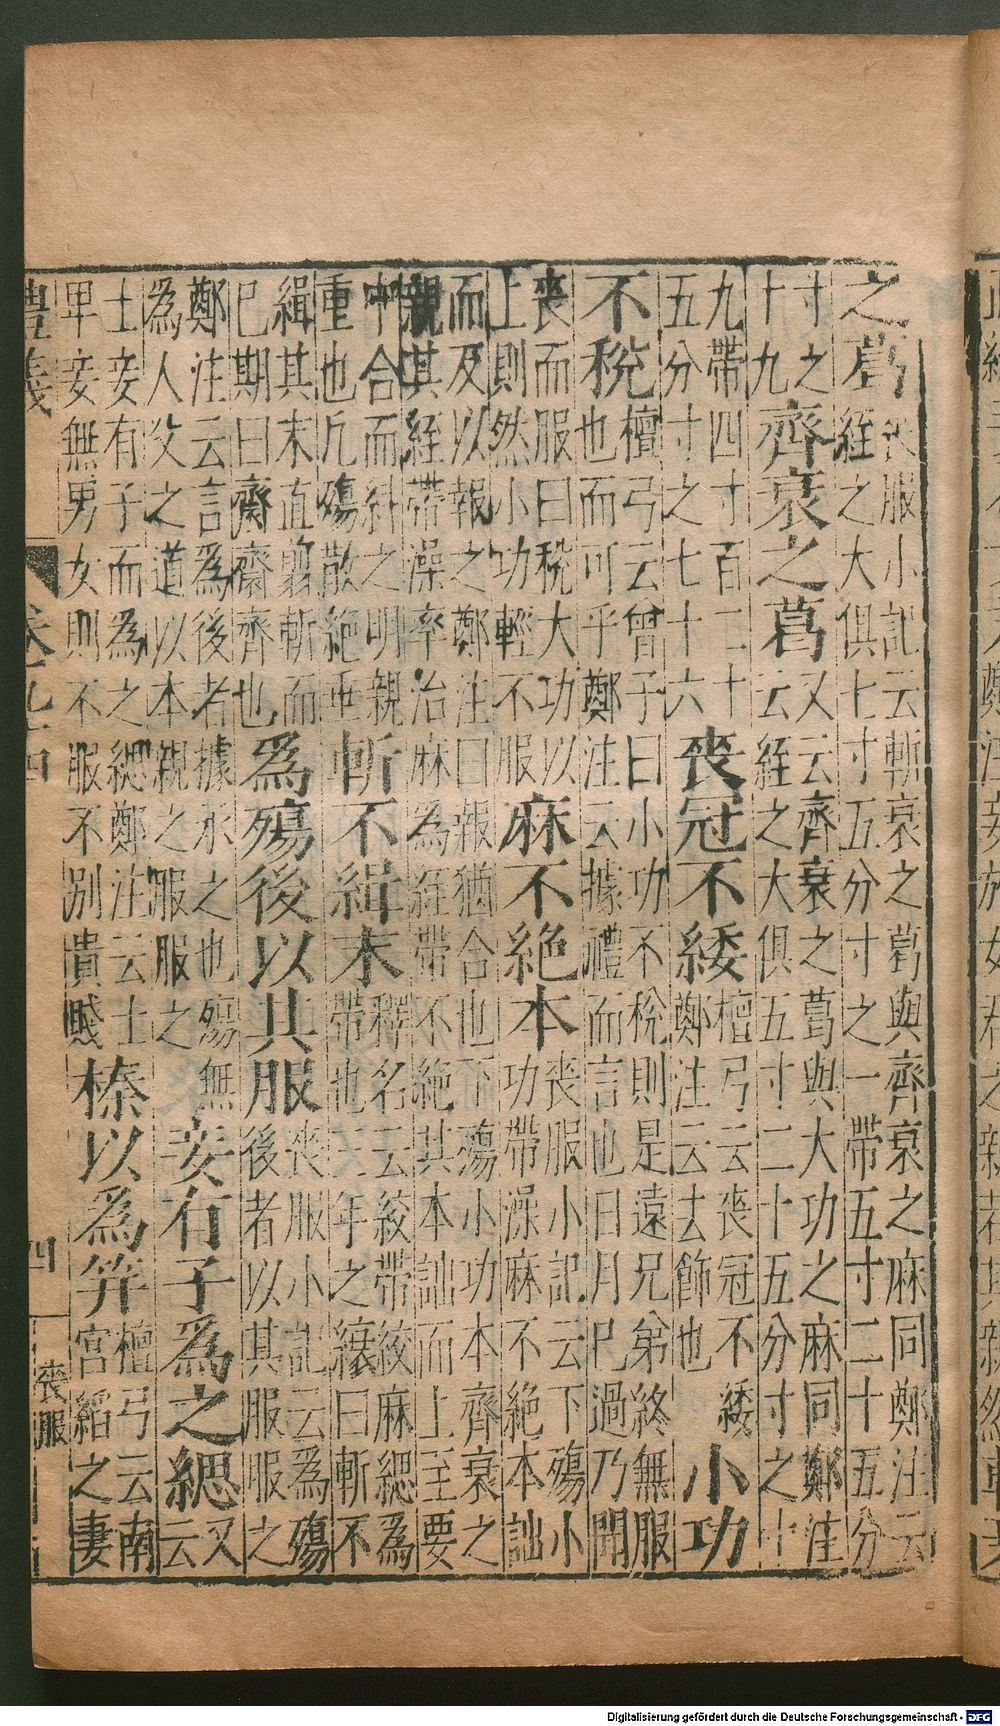 之葛 喪服小記云斬衰之葛與齊衰之麻同鄭注云
絰之大俱七寸五分寸之一帶五寸二十五分
寸之
十九 齊衰之葛 又云齊衰之葛與大功之麻同鄭注
云絰之大俱五寸二十五分寸之十
九帶四寸百二十
五分寸之七十六 喪冠不緌 檀弓云喪冠不緌
鄭注云去飾也 小功
不稅 檀弓云曾子曰小功不稅則是遠兄弟終無服
也而可乎鄭注云據禮而言也日月已過乃聞
喪而服曰稅大功以
上則然小功輕不服 麻不絕本 喪服小記云下殤小
功帶澡麻不絕本詘
而及以報之鄭注曰報猶合也下殤小功本齊衰之
親其絰帶澡率治麻為絰帶不絕其本詘而上至要
中合而糾之明親
重也凡殤散絕垂 斬不緝末 釋名云絞帶絞麻緦為
帶也三年之縗曰斬不
緝其末直翦斬而
已期曰齋齋齊也 為殤後以其服 喪服小記云為殤
後者以其服服之
鄭注云言為後者據承之也殤無
為人父之道以本親之服服之 妾有子為之緦 又
云
士妾有子而為之緦鄭注云士
卑妾無男女則不服不別貴賤 榛以為笄 檀弓云南
宮縚之妻
禮義 卷九十四 四 喪服
Digitalisierung gefördert durch die Deutsche Forschungsgemeinschaft - DFG